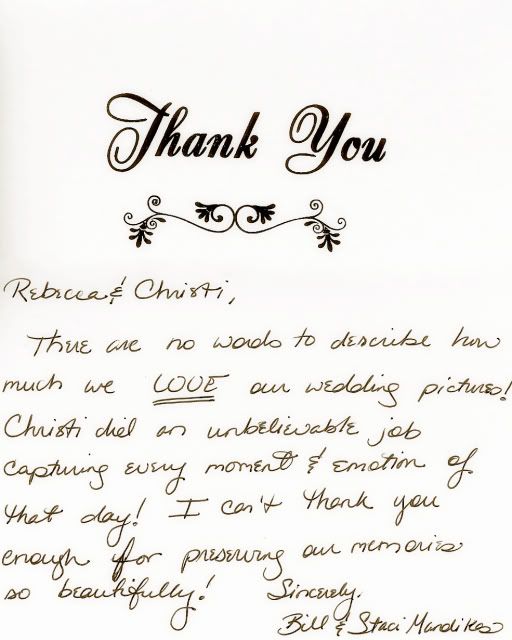 Thank You
Rebecca & Christi,
There are no words to describe how
much we LOVE our wedding pictures!
Christi did an unbelievable job
capturing every moment & emotion of
that day! I can't thank you
enough for preserving our memories
so beautifully! Sincerely,
Bill & Staci Mandikas